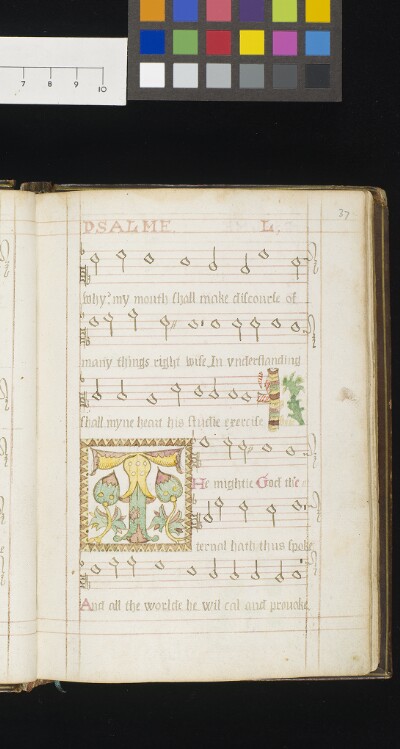 7 8 9 10
37
PSALME. L.
why? my mouth shall make discourse of
many things right wise, In vnderstanding
shall myne heart his studie exercise
THe mightie God the e
ternal hath thus spoke
And all the worlde he wil cal and prouoke